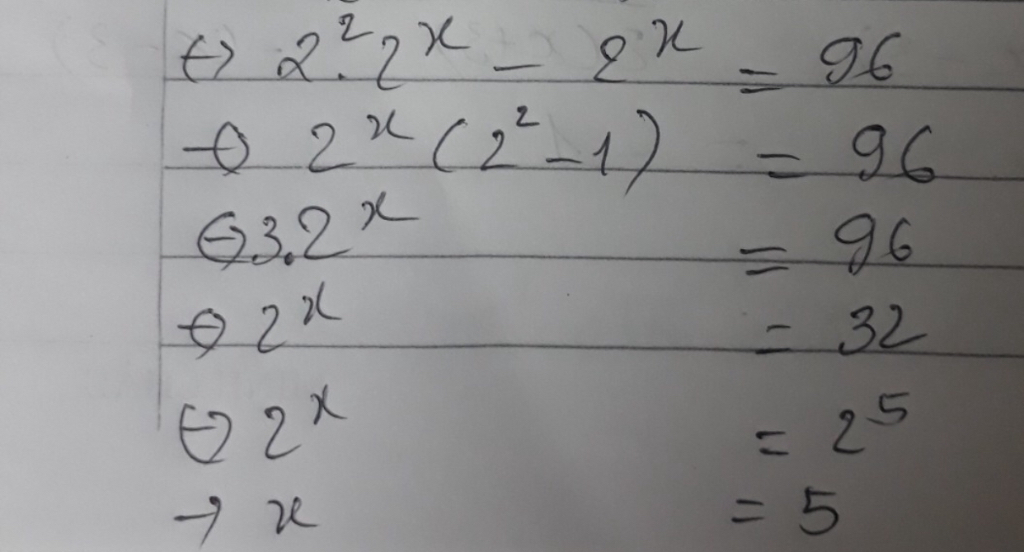 ⇔ 2².2ˣ - 2ˣ = 96
⇔ 2ˣ(2² - 1) = 96
⇔ 3.2ˣ = 96
⇔ 2ˣ = 32
⇔ 2ˣ = 2⁵
→ x = 5